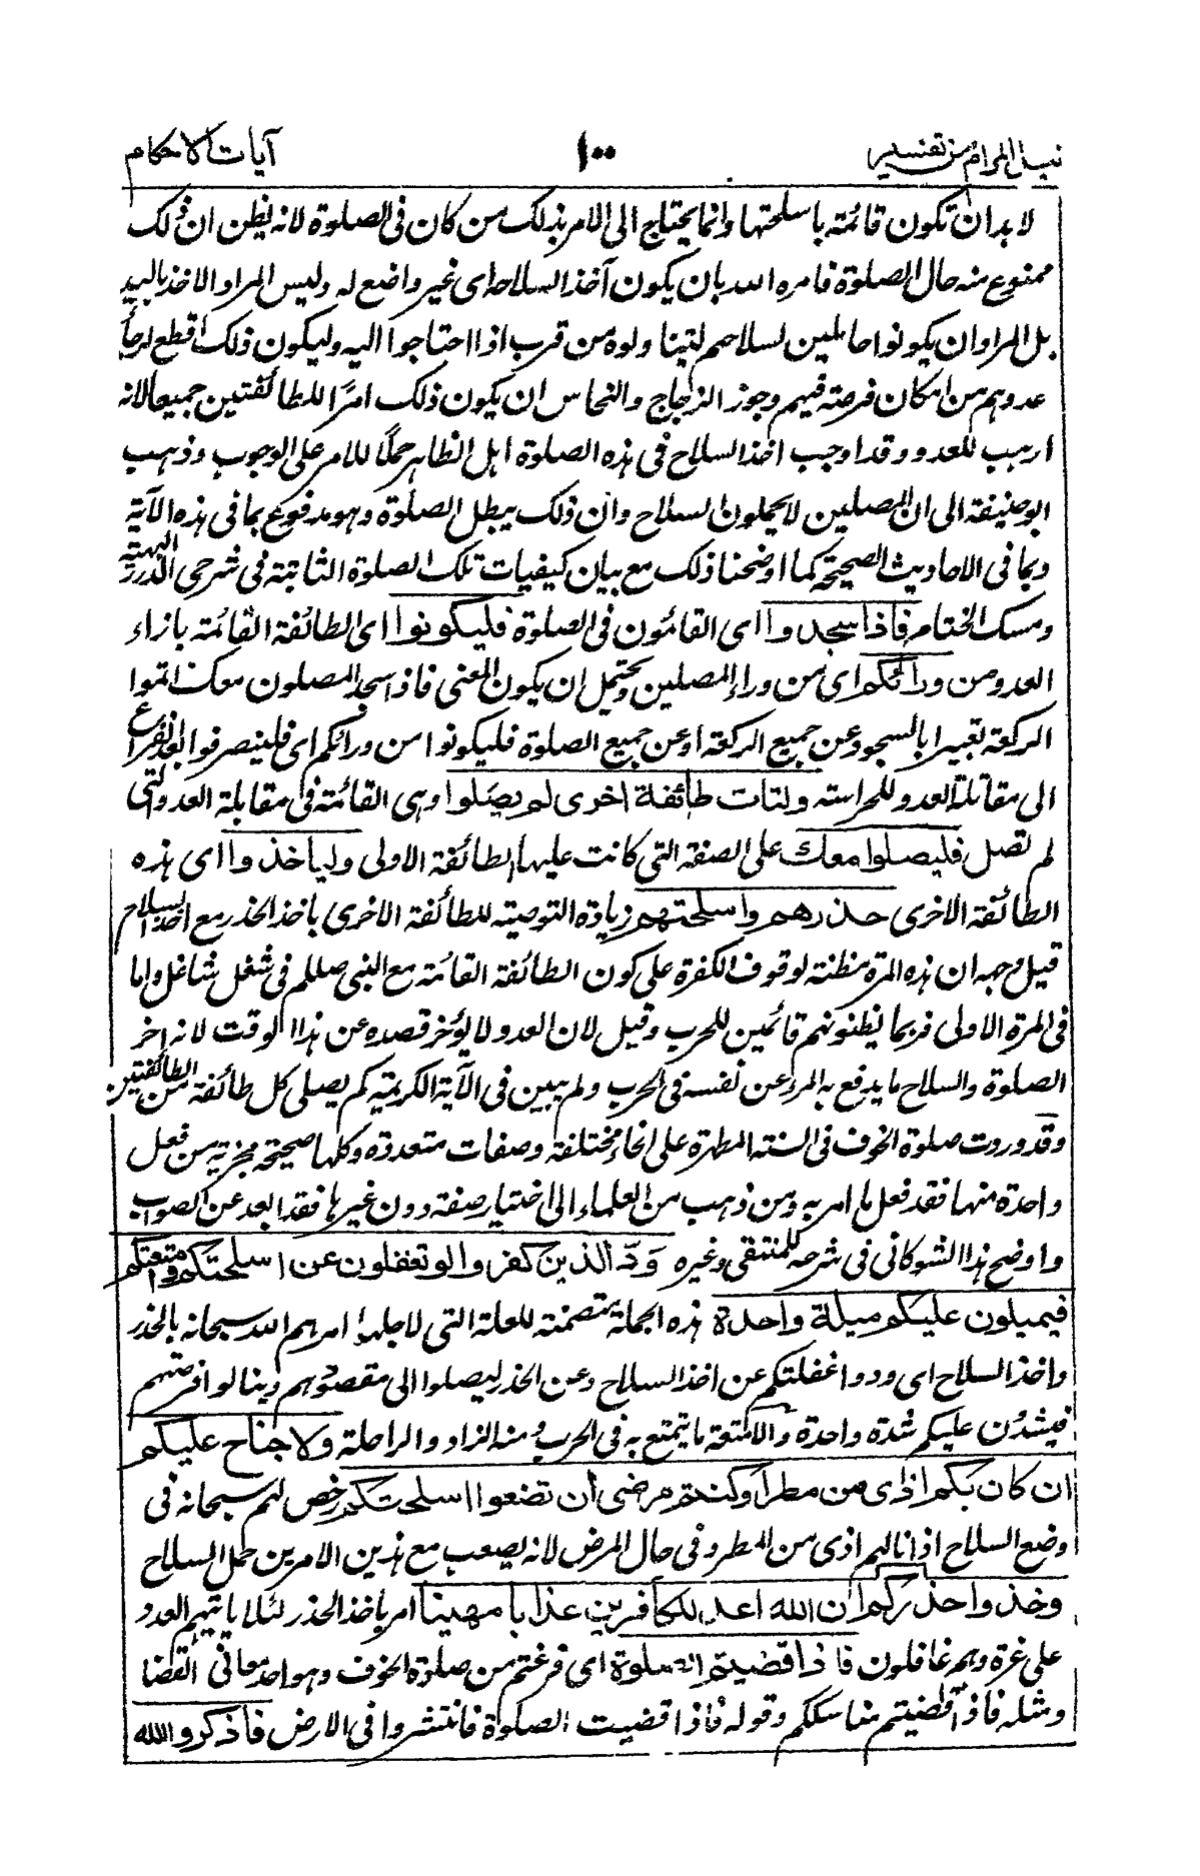 نيل المرام من تفسير ١٠٠ آيات الاحكام
لا بد ان تكون قائمة باسلحتها وانما يحتاج الى الامر بذلك من كان فى الصلوة لانه يظن ان ذلك
ممنوع منه حال الصلوة فامره الله بان يكون آخذا لسلاحه اى غير واضع له وليس المراد الاخذ باليد
بل المراد ان يكونوا حاملين لسلاحهم ليتناولوه من قرب اذا احتاجوا اليه وليكون ذلك اقطع لرجاء
عدوهم من امكان فرصته فيهم وجوز الزجاج والنحاس ان يكون ذلك امرًا للطائفتين جميعا لانه
ارهب للعدو وقد اوجب اخذ السلاح فى هذه الصلوة اهل الظاهر حملًا للامر على الوجوب وذهب
ابو حنيفة الى ان المصلين لا يحملون السلاح وان ذلك يبطل الصلوة وهو مدفوع بما فى هذه الآية
وبما فى الاحاديث الصحيحة كما اوضحنا ذلك مع بيان كيفيات تلك الصلوة الثابتة فى شرحى الدرر البهية
ومسك الختام فاذا سجدوا اى القائمون فى الصلوة فليكونوا اى الطائفة القائمة بازاء
العدو من ورائكم اى من وراء المصلين ويحتمل ان يكون المعنى فاذا سجد المصلون معك اتموا
الركعة تعبيرا بالسجود عن جميع الركعة او عن جميع الصلوة فليكونوا من ورائكم اى فلينصرفوا بعد الفراغ
الى مقابلة العدو للحراسة ولتات طائفة اخرى لم يصلوا وهى القائمة فى مقابلة العدو التى
لم تصل فليصلوا معك على الصفة التى كانت عليها الطائفة الاولى ولياخذوا اى هذه
الطائفة الاخرى حذرهم واسلحتهم زيادة التوصية للطائفة الاخرى باخذ الحذر مع اخذ السلاح
قيل وجهه ان هذه المرة مظنة لوقوف الكفرة على كون الطائفة القائمة مع النبى صللم فى شغل شاغل واما
فى المرة الاولى فربما يظنونهم قائمين للحرب وقيل لان العدو لا يؤخر قصده عن هذا الوقت لانه اخر
الصلوة والسلاح ما يدفع به المرء عن نفسه فى الحرب ولم يبين فى الآية الكريمة كم يصلى كل طائفة من الطائفتين
وقد وردت صلوة الخوف فى السنة المطهرة على انحاء مختلفة وصفات متعددة وكلها صحيحة مجزية من فعل
واحدة منها فقد فعل ما امر به ومن ذهب من العلماء الى اختيار صفة دون غيرها فقد ابعد عن الصواب
واوضح هذا الشوكانى فى شرحه للمنتقى وغيره ودّ الذين كفروا لو تغفلون عن اسلحتكم وامتعتكم
فيميلون عليكم ميلة واحدة هذه الجملة متضمنة للعلة التى لاجلها امرهم الله سبحانه بالحذر
واخذ السلاح اى ودوا غفلتكم عن اخذ السلاح وعن الحذر ليصلوا الى مقصودهم وينالوا فرصتهم
فيشدون عليكم شدة واحدة والامتعة ما يتمتع به فى الحرب ومنه الزاد والراحلة ولا جناح عليكم
ان كان بكم اذى من مطر او كنتم مرضى أن تضعوا اسلحتكم رخص لهم سبحانه فى
وضع السلاح اذا نالهم اذى من المطر وفى حال المرض لانه يصعب مع هذين الامرين حمل السلاح
وخذوا حذركم ان الله اعد للكافرين عذابا مهينا امر باخذ الحذر لئلا ياتيهم العدو
على غرة وهم غافلون فاذا قضيتم الصلوة اى فرغتم من صلوة الخوف وهو احد معانى القضا
ومثله فاذا قضيتم مناسككم وقوله فاذا قضيت الصلوة فانتشروا فى الارض فاذكروا الله